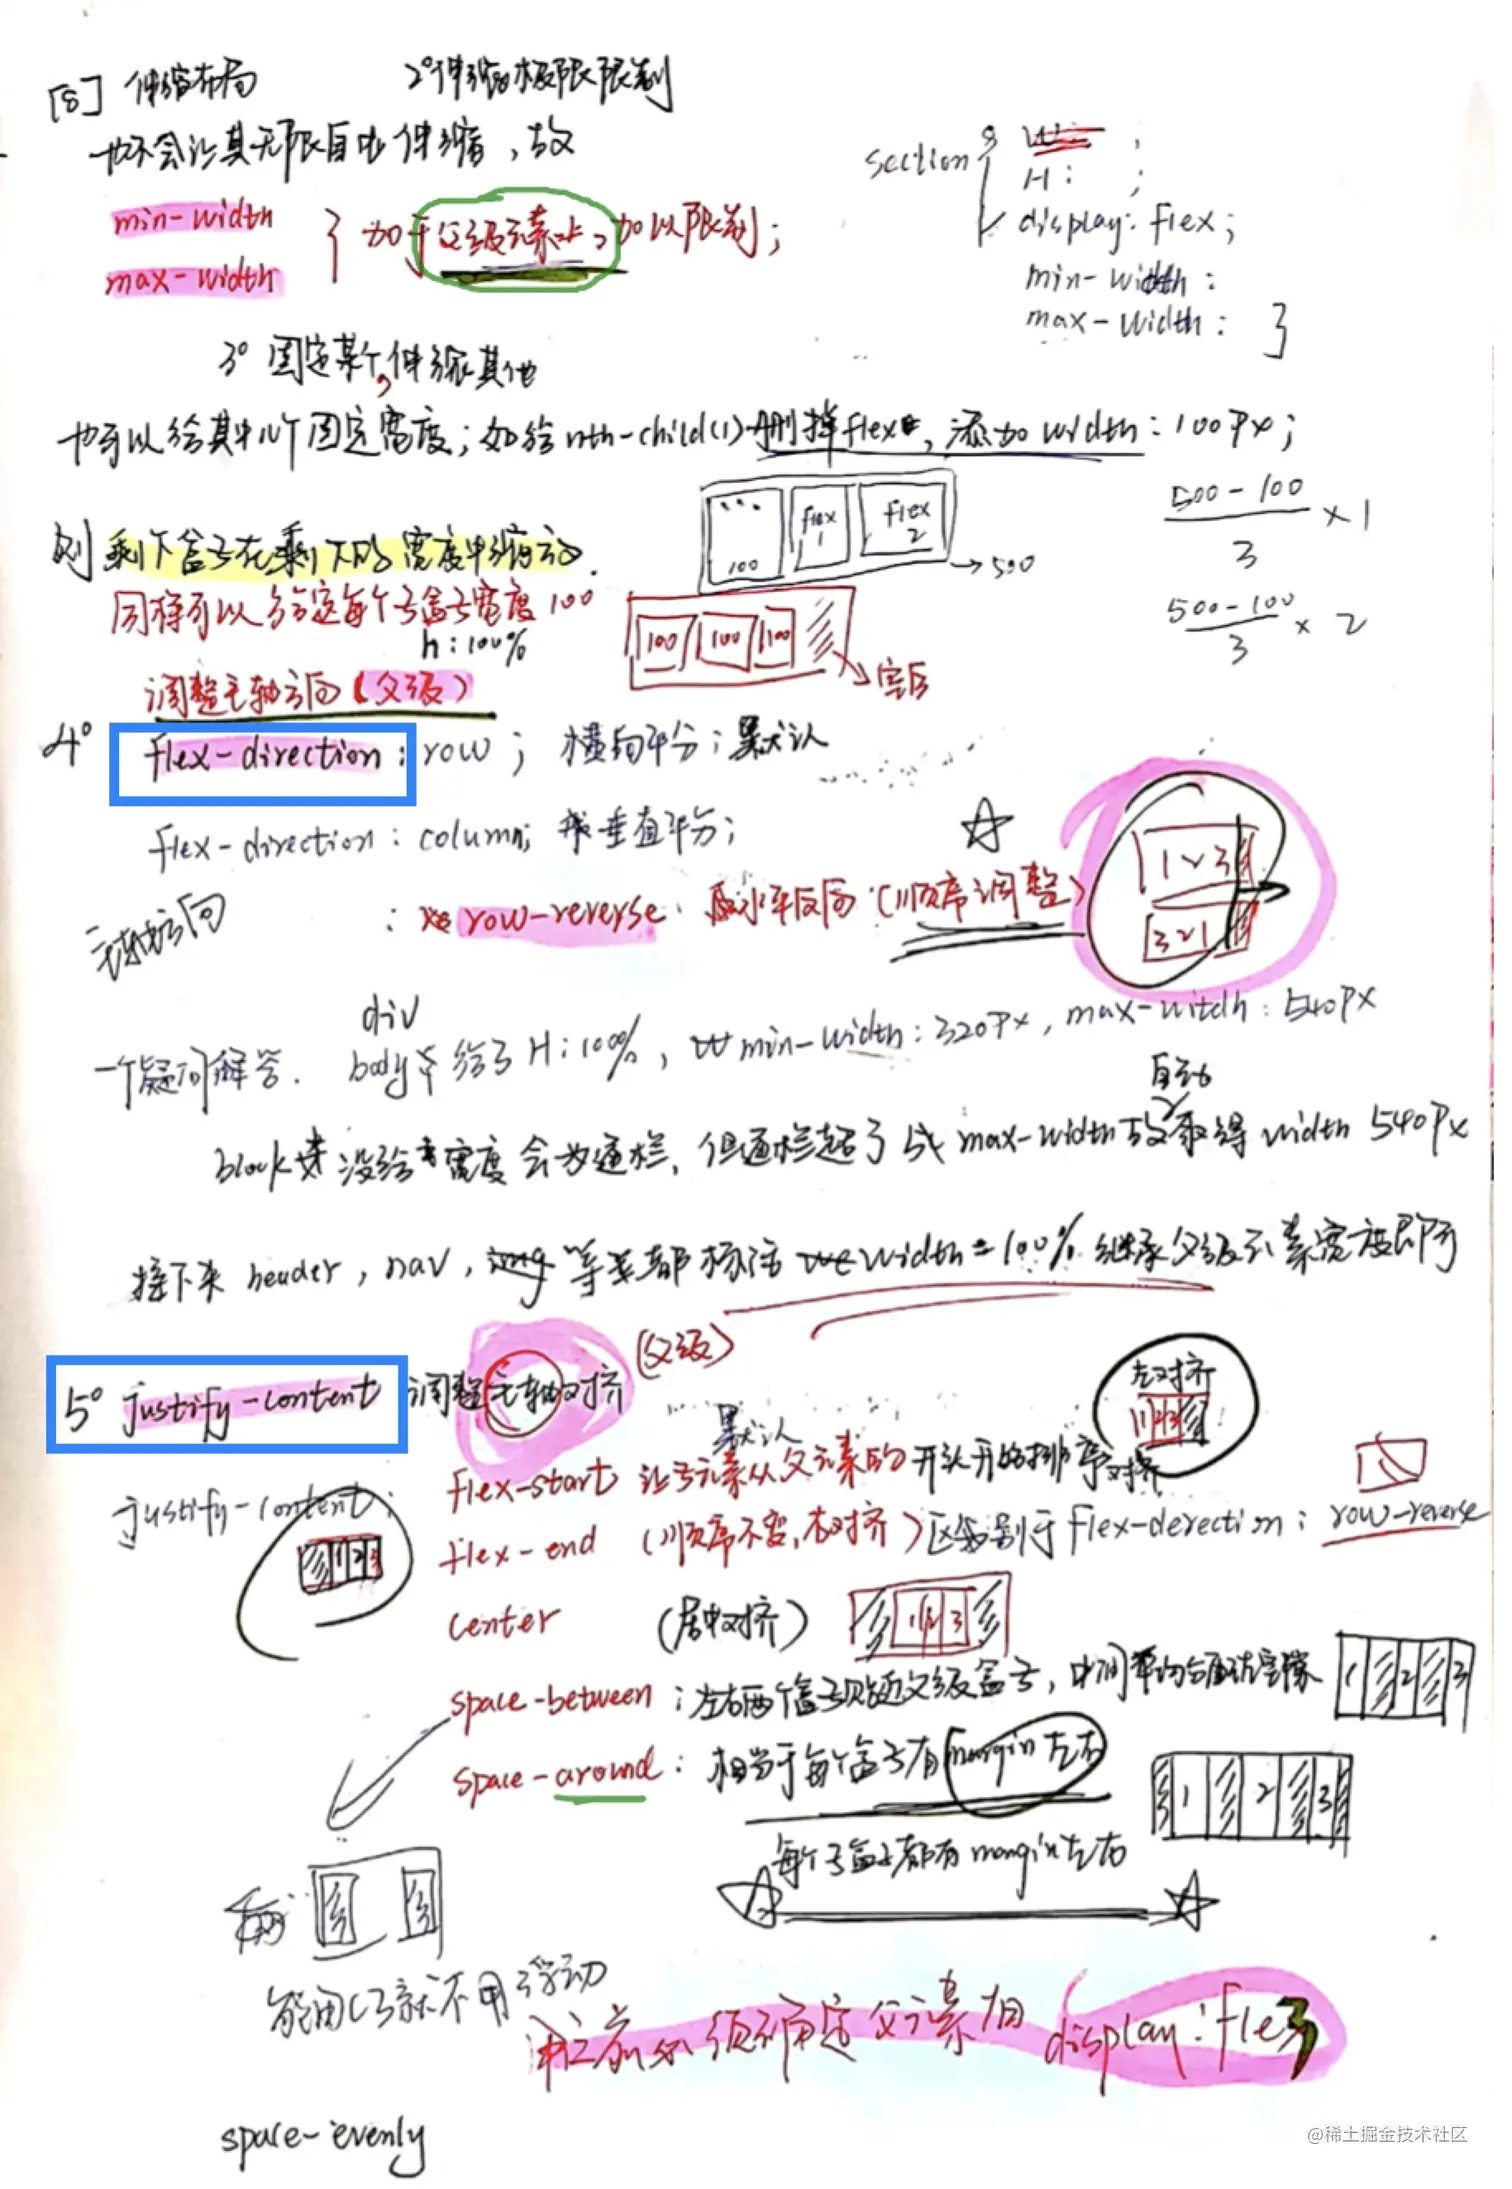 [8] 伸缩布局 2° 伸缩的极限限制
也不会让其无限自由伸缩,故
min-width
max-width
} 加于父级元素上,加以限制;
section {
W: ;
H: ;
display: flex;
min-width:
max-width: }
3° 固定某个,伸缩其他
也可以给其中几个固定宽度;如给nth-child(1)删掉flex,添加width:100px;
100 flex 1 flex 2 →500
500-100 / 3 ×1
则剩下盒子在剩下的宽度中缩放.
同样可以给定每个子盒子宽度100
h:100%
100 100 100
500-100 / 3 × 2
调整主轴方向(父级)
4° flex-direction: row; 横向平分;默认
flex-direction: column; 垂直平分;
主轴方向 : row-reverse. 水平反向(顺序调整)
1 2 3
3 2 1
div
一个疑问解答. body中给了H:100%, min-width:320px, max-witdh:540px
自动
block 没给宽度会为通栏,但通栏超了 max-width 故取得 width 540px
接下来 header, nav, img 等 width=100% 继承父级元素宽度即可
(父级)
5° justify-content 调整主轴对齐
左对齐
1 2 3
默认
justify-content:
flex-start 让子元素从父元素的开头开始排序对齐
1 2 3
flex-end (顺序不变,右对齐)区别于flex-derection: row-reverse
center (居中对齐) 1 2 3
space-between: 左右两个盒子贴近父级盒子,中间平均 1 2 3
space-around: 相当于每个盒子有margin左右 1 2 3
每个子盒子都有margin左右
能用 就不用浮动
必须确定父元素有 display:flex
space-evenly
@稀土掘金技术社区